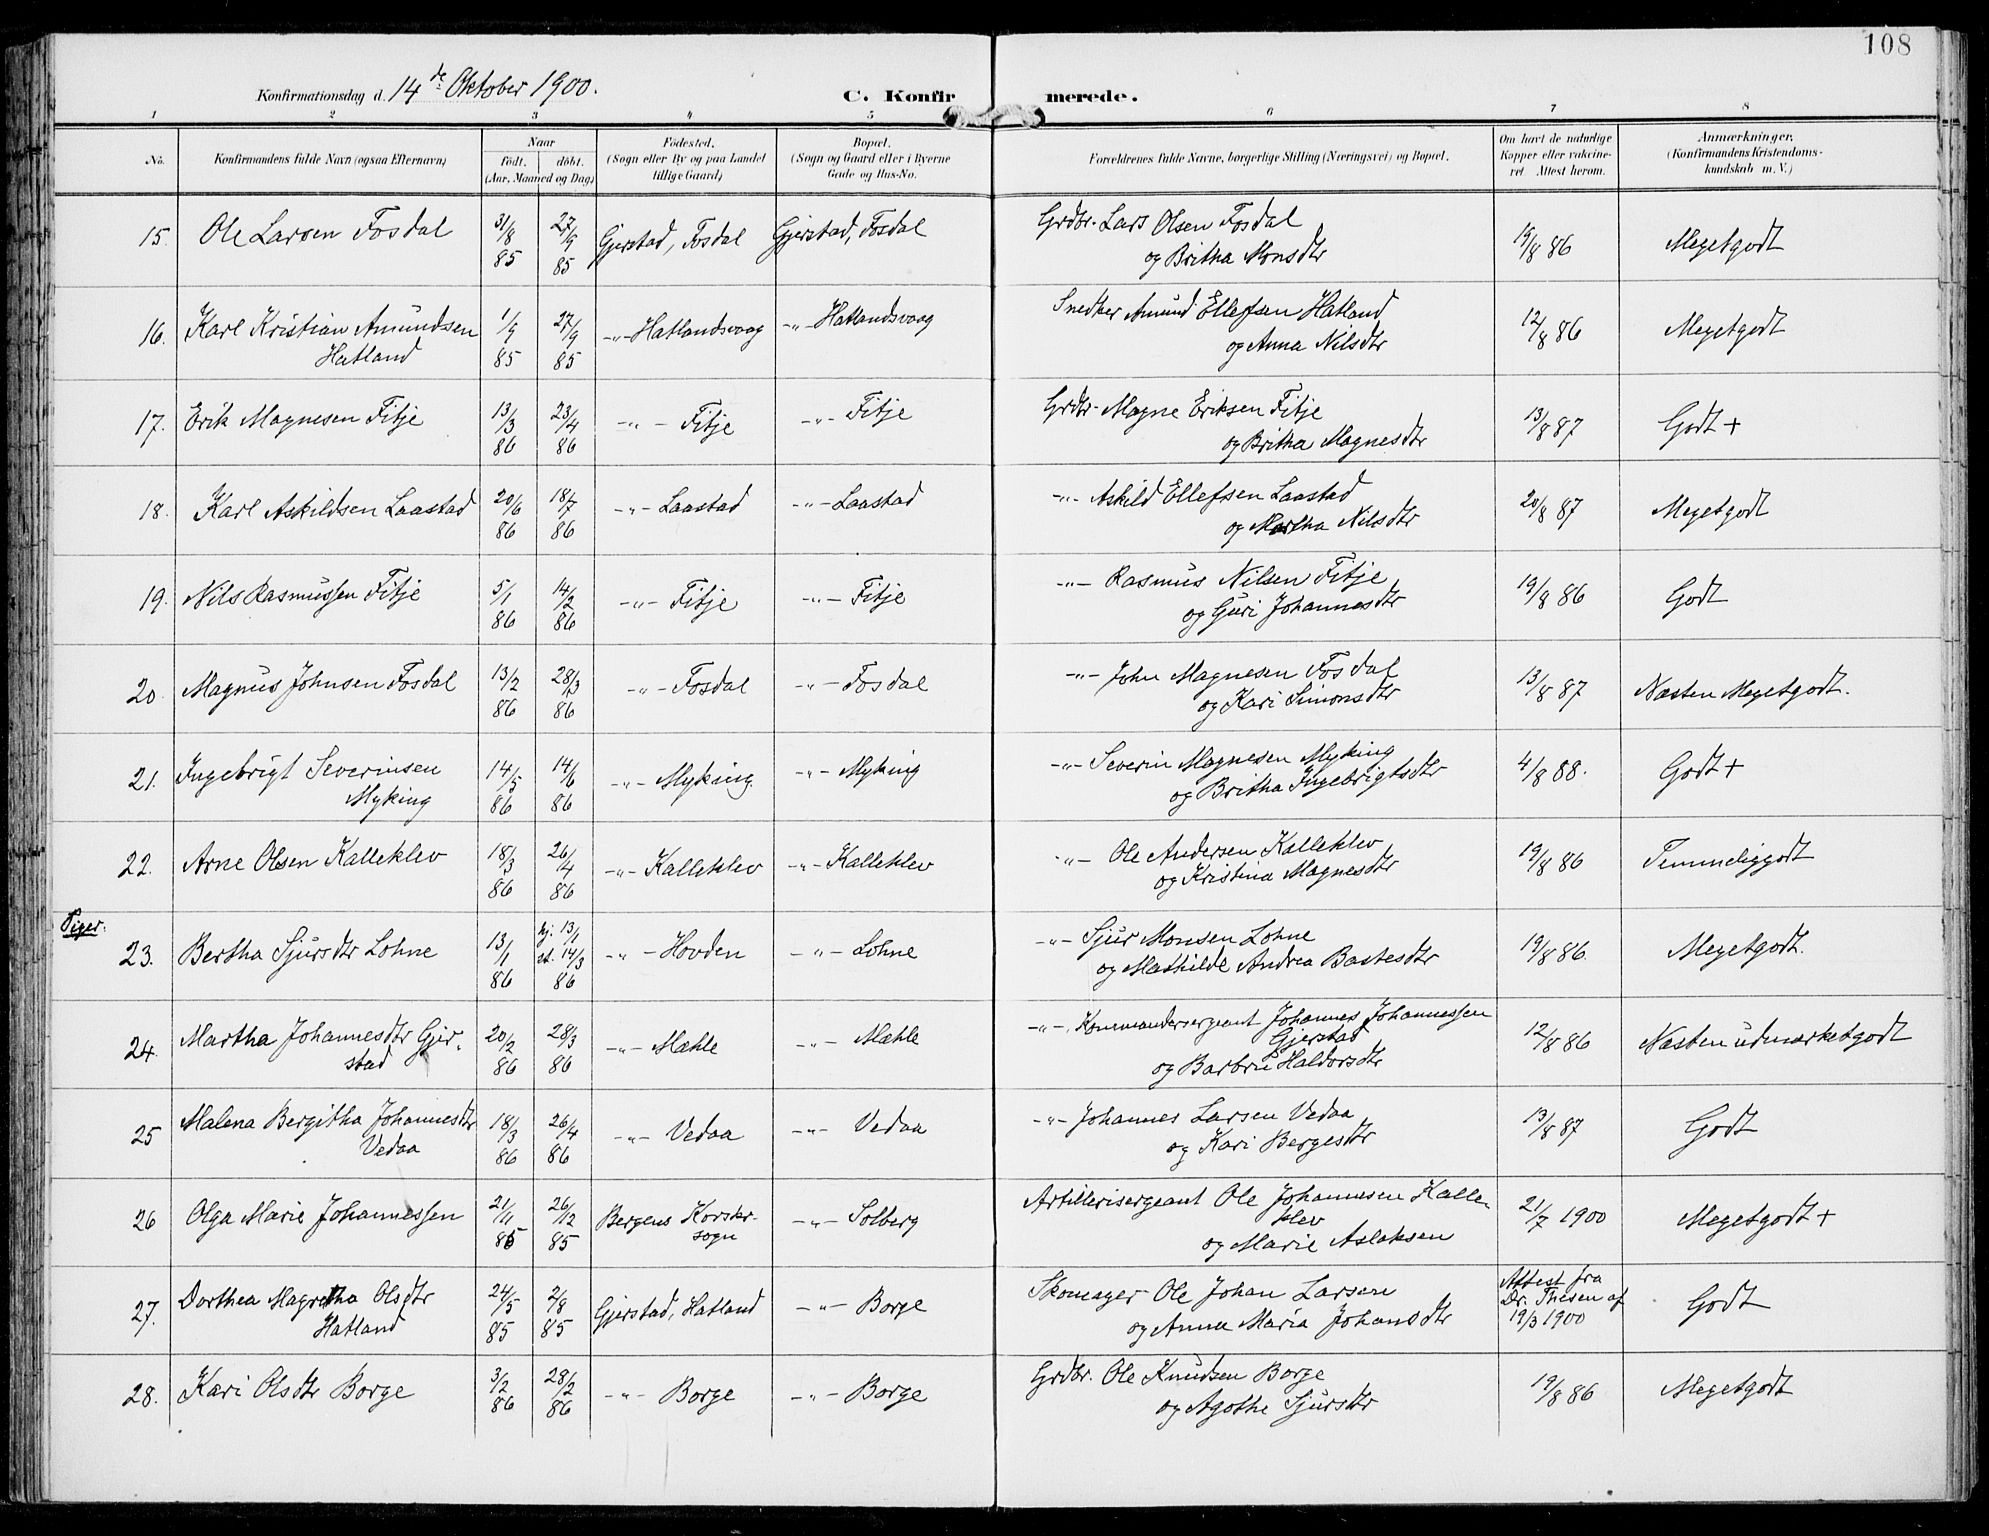 108
Konfirmationsdag d. 14de Oktober 1900.
C. Konfirmerede.
1 2 3 4 5 6 7 8
No.
Konfirmandens fulde Navn (ogsaa Efternavn)
Naar
födt. döbt.
(Aar, Maaned og Dag)
Födested.
(Sogn eller By og paa Landet
tillige Gaard)
Bopæl.
(Sogn og Gaard eller i Byerne
Gade og Hus-No.
Forældrenes fulde Navne, borgerlige Stilling (Næringsvei) og Bopæl.
Om havt de naturlige
Kopper eller vakcine-
ret. Attest herom.
Anmærkninger.
(Konfirmandens Kristendoms-
kundskab m. V.)
15. Ole Larsen Fosdal 31/8 85 27/9 85 Gjerstad, Fosdal Gjerstad, Fosdal Grdbr. Lars Olsen Fosdal 19/8 86 Megetgodt
og Britha Monsdtr
16. Karl Kristian Amundsen 1/9 85 27/9 85 -"- Hatlandsvaag -"- Hatlandsvaag Snedker Amund Ellefsen Hatland 12/8 86 Megetgodt
Hatland og Anna Nilsdtr
17. Erik Magnesen Fitje 13/3 86 23/4 86 -"- Fitje -"- Fitje Grdbr. Magne Eriksen Fitje 13/8 87 Godt +
og Britha Magnesdtr
18. Karl Askildsen Laastad 20/6 86 18/7 86 -"- Laastad -"- Laastad -"- Askild Ellefsen Laastad 20/8 87 Megetgodt
og Martha Nilsdtr
19. Nils Rasmussen Fitje 5/1 86 14/2 86 -"- Fitje -"- Fitje -"- Rasmus Nilsen Fitje 19/8 86 Godt
og Guri Johannesdtr
20. Magnus Johnsen Fosdal 13/2 86 28/3 86 -"- Fosdal -"- Fosdal -"- John Magnesen Fosdal 13/8 87 Næsten Megetgodt.
og Kari Simonsdtr
21. Ingebrigt Severinsen 14/5 86 14/6 86 -"- Myking. -"- Myking -"- Severin Magnesen Myking 4/8 88. Godt +
Myking og Britha Ingebrigtsdtr
22. Arne Olsen Kalleklev 18/3 86 26/4 86 -"- Kalleklev -"- Kalleklev -"- Ole Andersen Kalleklev 19/8 86 Temmeliggodt
og Kristina Magnesdtr
Piger.
23. Bertha Sjursdtr Lohne 13/1 86 hj. 13/1 st. 14/3 86 -"- Hovden -"- Lohne -"- Sjur Monsen Lohne 19/8 86. Megetgodt.
og Mathilde Andrea Bastesdtr
24. Martha Johannesdtr Gjer- 20/2 86 28/3 86 -"- Mæhle -"- Mæhle -"- Kommandersergeant Johannes Johannessen 12/8 86 Næsten udmærketgodt
stad Gjerstad
og Barbru Haldorsdtr
25 Malena Bergitha Johannesdtr 18/3 86 26/4 86 -"- Vedaa -"- Vedaa -"- Johannes Larsen Vedaa 13/8 87 Godt
Vedaa og Kari Bergesdtr
26 Olga Marie Johannessen 21/11 85 26/12 85 Bergens Korskir- -"- Solberg Artillerisergeant Ole Johannesen Kalle- 21/7 1900 Megetgodt +
sogn klev
og Marie Aslaksen
27. Dorthea Magretha Olsdtr 24/5 85 2/8 85 Gjerstad, Hatland -"- Borge Skomager Ole Johan Larsen Attest fra Godt
Hatland og Anna Maria Johansdtr Dr. Thesen af
19/3 1900
28. Kari Olsdtr Borge 3/2 86 28/2 86 -"- Borge -"- Borge Grdbr. Ole Knudsen Borge 19/8 86 Megetgodt
og Agathe Sjursdtr